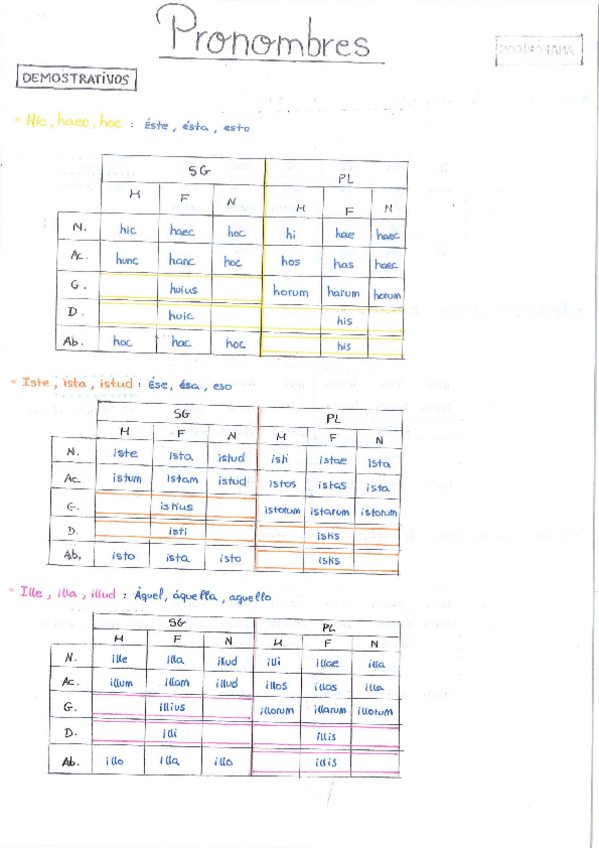 Pronombres
DEMOSTRATIVOS
- Hic, haec, hoc : Éste, ésta, esto
SG PL
M F N M F N
N. hic haec hoc hi hae haec
Ac. hunc hanc hoc hos has haec
G. huius horum harum horum
D. huic his
Ab. hoc hac hoc his
- Iste, ista, istud : Ése, ésa, eso
SG PL
M F N M F N
N. iste ista istud isti istae ista
Ac. istum istam istud istos istas ista
G. istius istorum istarum istorum
D. isti istis
Ab. isto ista isto istis
- Ille, illa, illud : Áquel, áquella, aquello
SG PL
M F N M F N
N. ille illa illud illi illae illa
Ac. illum illam illud illos illas illa
G. illius illorum illarum illorum
D. illi illis
Ab. illo illa illo illis